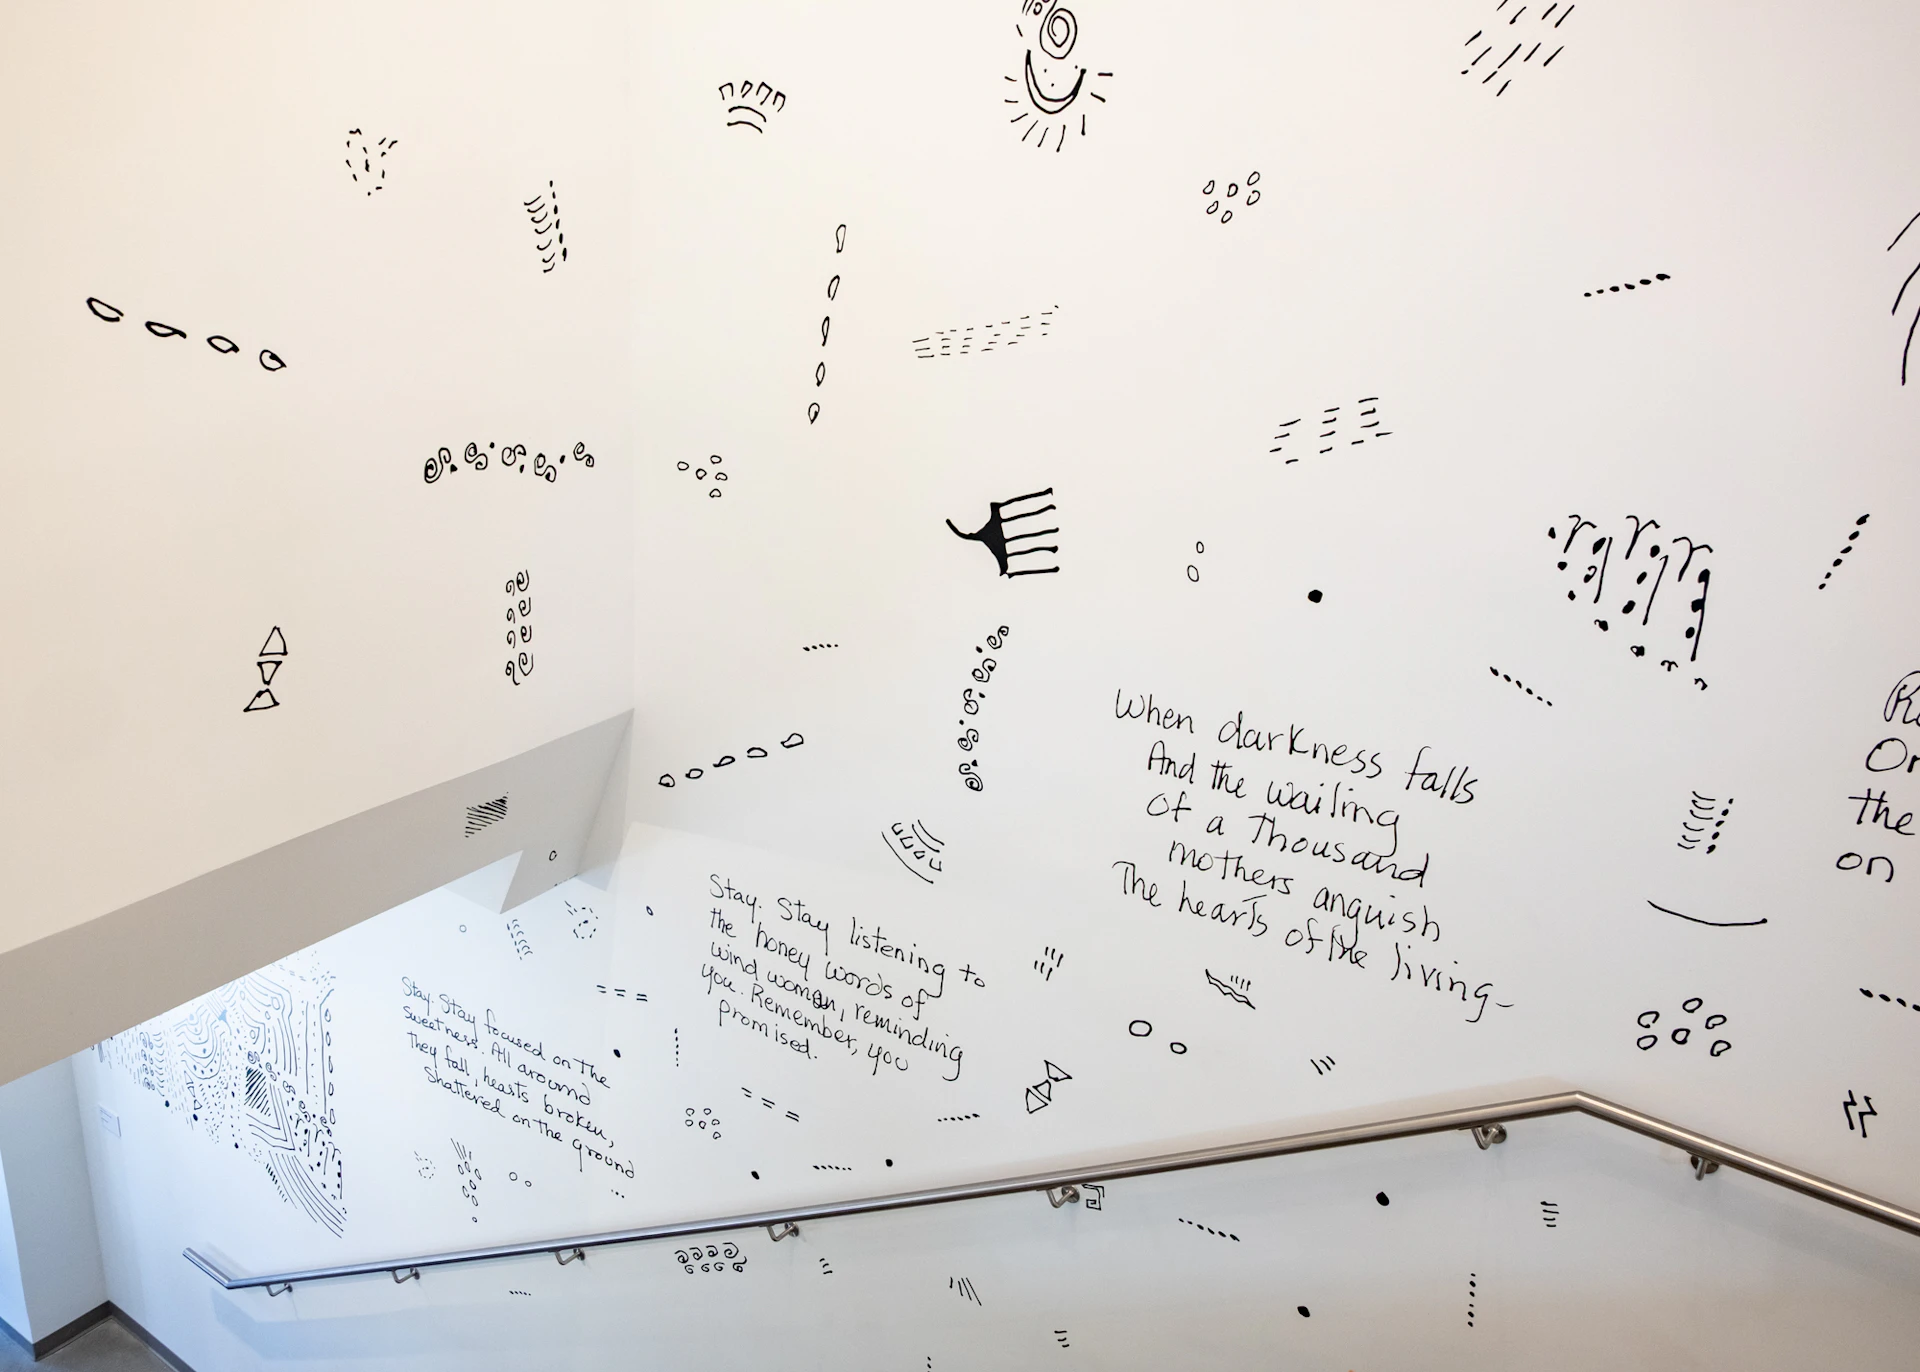 Stay. Stay focused on the
sweetness. All around
They fall, hearts broken,
Shattered on the ground
...
Stay. Stay listening to
the honey words of
wind woman, reminding
you. Remember, you
promised.
When darkness falls
And the wailing
Of a Thousand
mothers anguish
The hearts of the living-
the
on